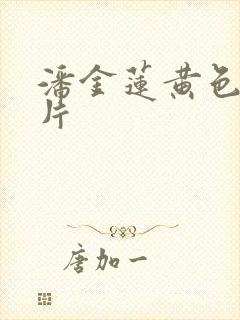 潘金莲黄色
片
唐加一